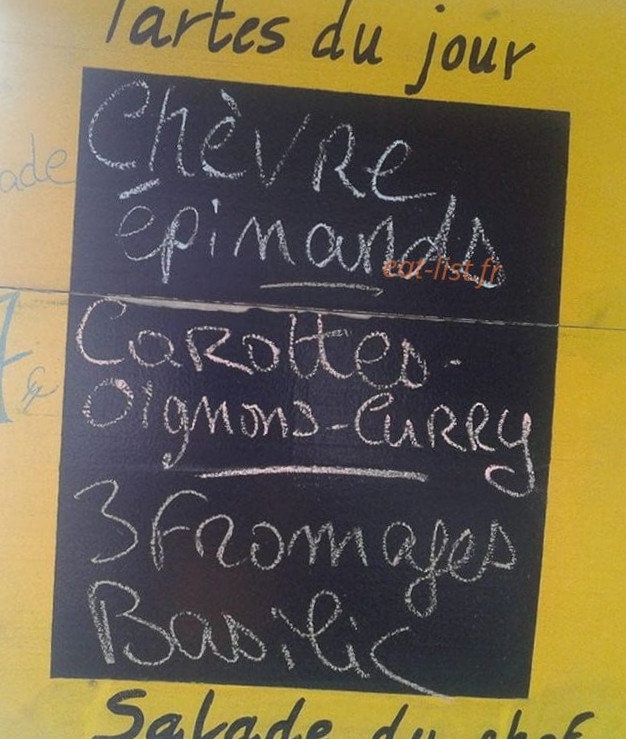 Tartes du jour
Chèvre
épinards
eat-list.fr
Carottes-
Oignons-Curry
3 fromages
Basilic
Salade du chef
ade